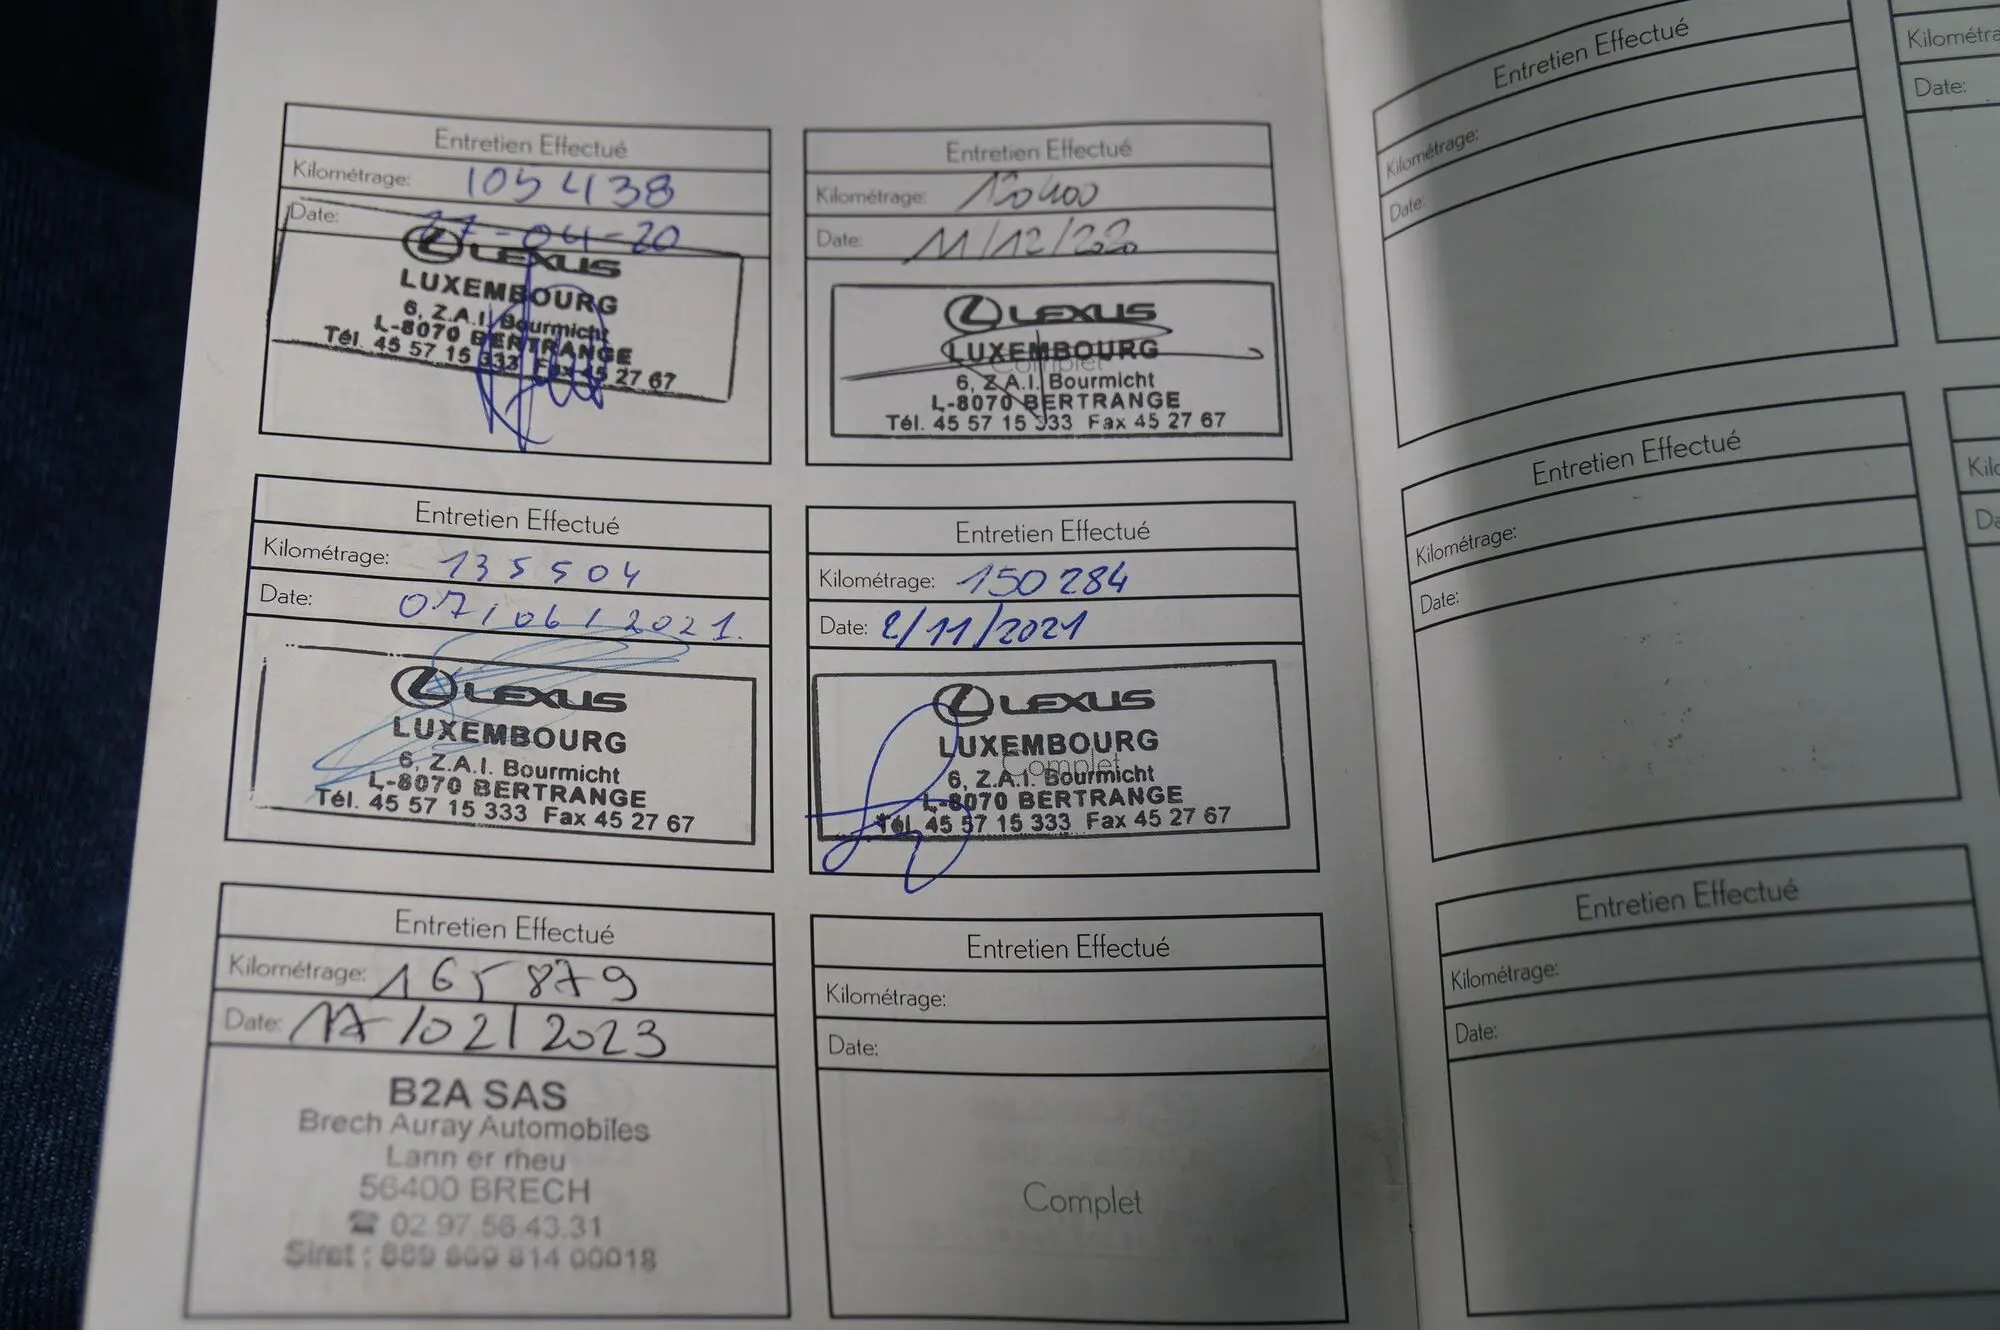 Entretien Effectué
Kilométrage: 105438
Date: 27-04-20
LEXUS
LUXEMBOURG
6, Z.A.I. Bourmicht
L-8070 BERTRANGE
Tél. 45 57 15 333 Fax 45 27 67
Entretien Effectué
Kilométrage: 120400
Date: 11/12/2020
LEXUS
LUXEMBOURG
Complet
6, Z.A.I. Bourmicht
L-8070 BERTRANGE
Tél. 45 57 15 333 Fax 45 27 67
Entretien Effectué
Kilométrage: 135504
Date: 07/06/2021.
LEXUS
LUXEMBOURG
6, Z.A.I. Bourmicht
L-8070 BERTRANGE
Tél. 45 57 15 333 Fax 45 27 67
Entretien Effectué
Kilométrage: 150284
Date: 2/11/2021
LEXUS
LUXEMBOURG
Complet
6, Z.A.I. Bourmicht
L-8070 BERTRANGE
Tél. 45 57 15 333 Fax 45 27 67
Entretien Effectué
Kilométrage: 165879
Date: 17/02/2023
B2A SAS
Brech Auray Automobiles
Lann er rheu
56400 BRECH
☎ 02 97.56.43.31
Siret : 889 809 814 00018
Entretien Effectué
Kilométrage:
Date:
Complet
Entretien Effectué
Kilométrage:
Date:
Entretien Effectué
Kilométrage:
Date:
Entretien Effectué
Kilométrage:
Date:
Date: